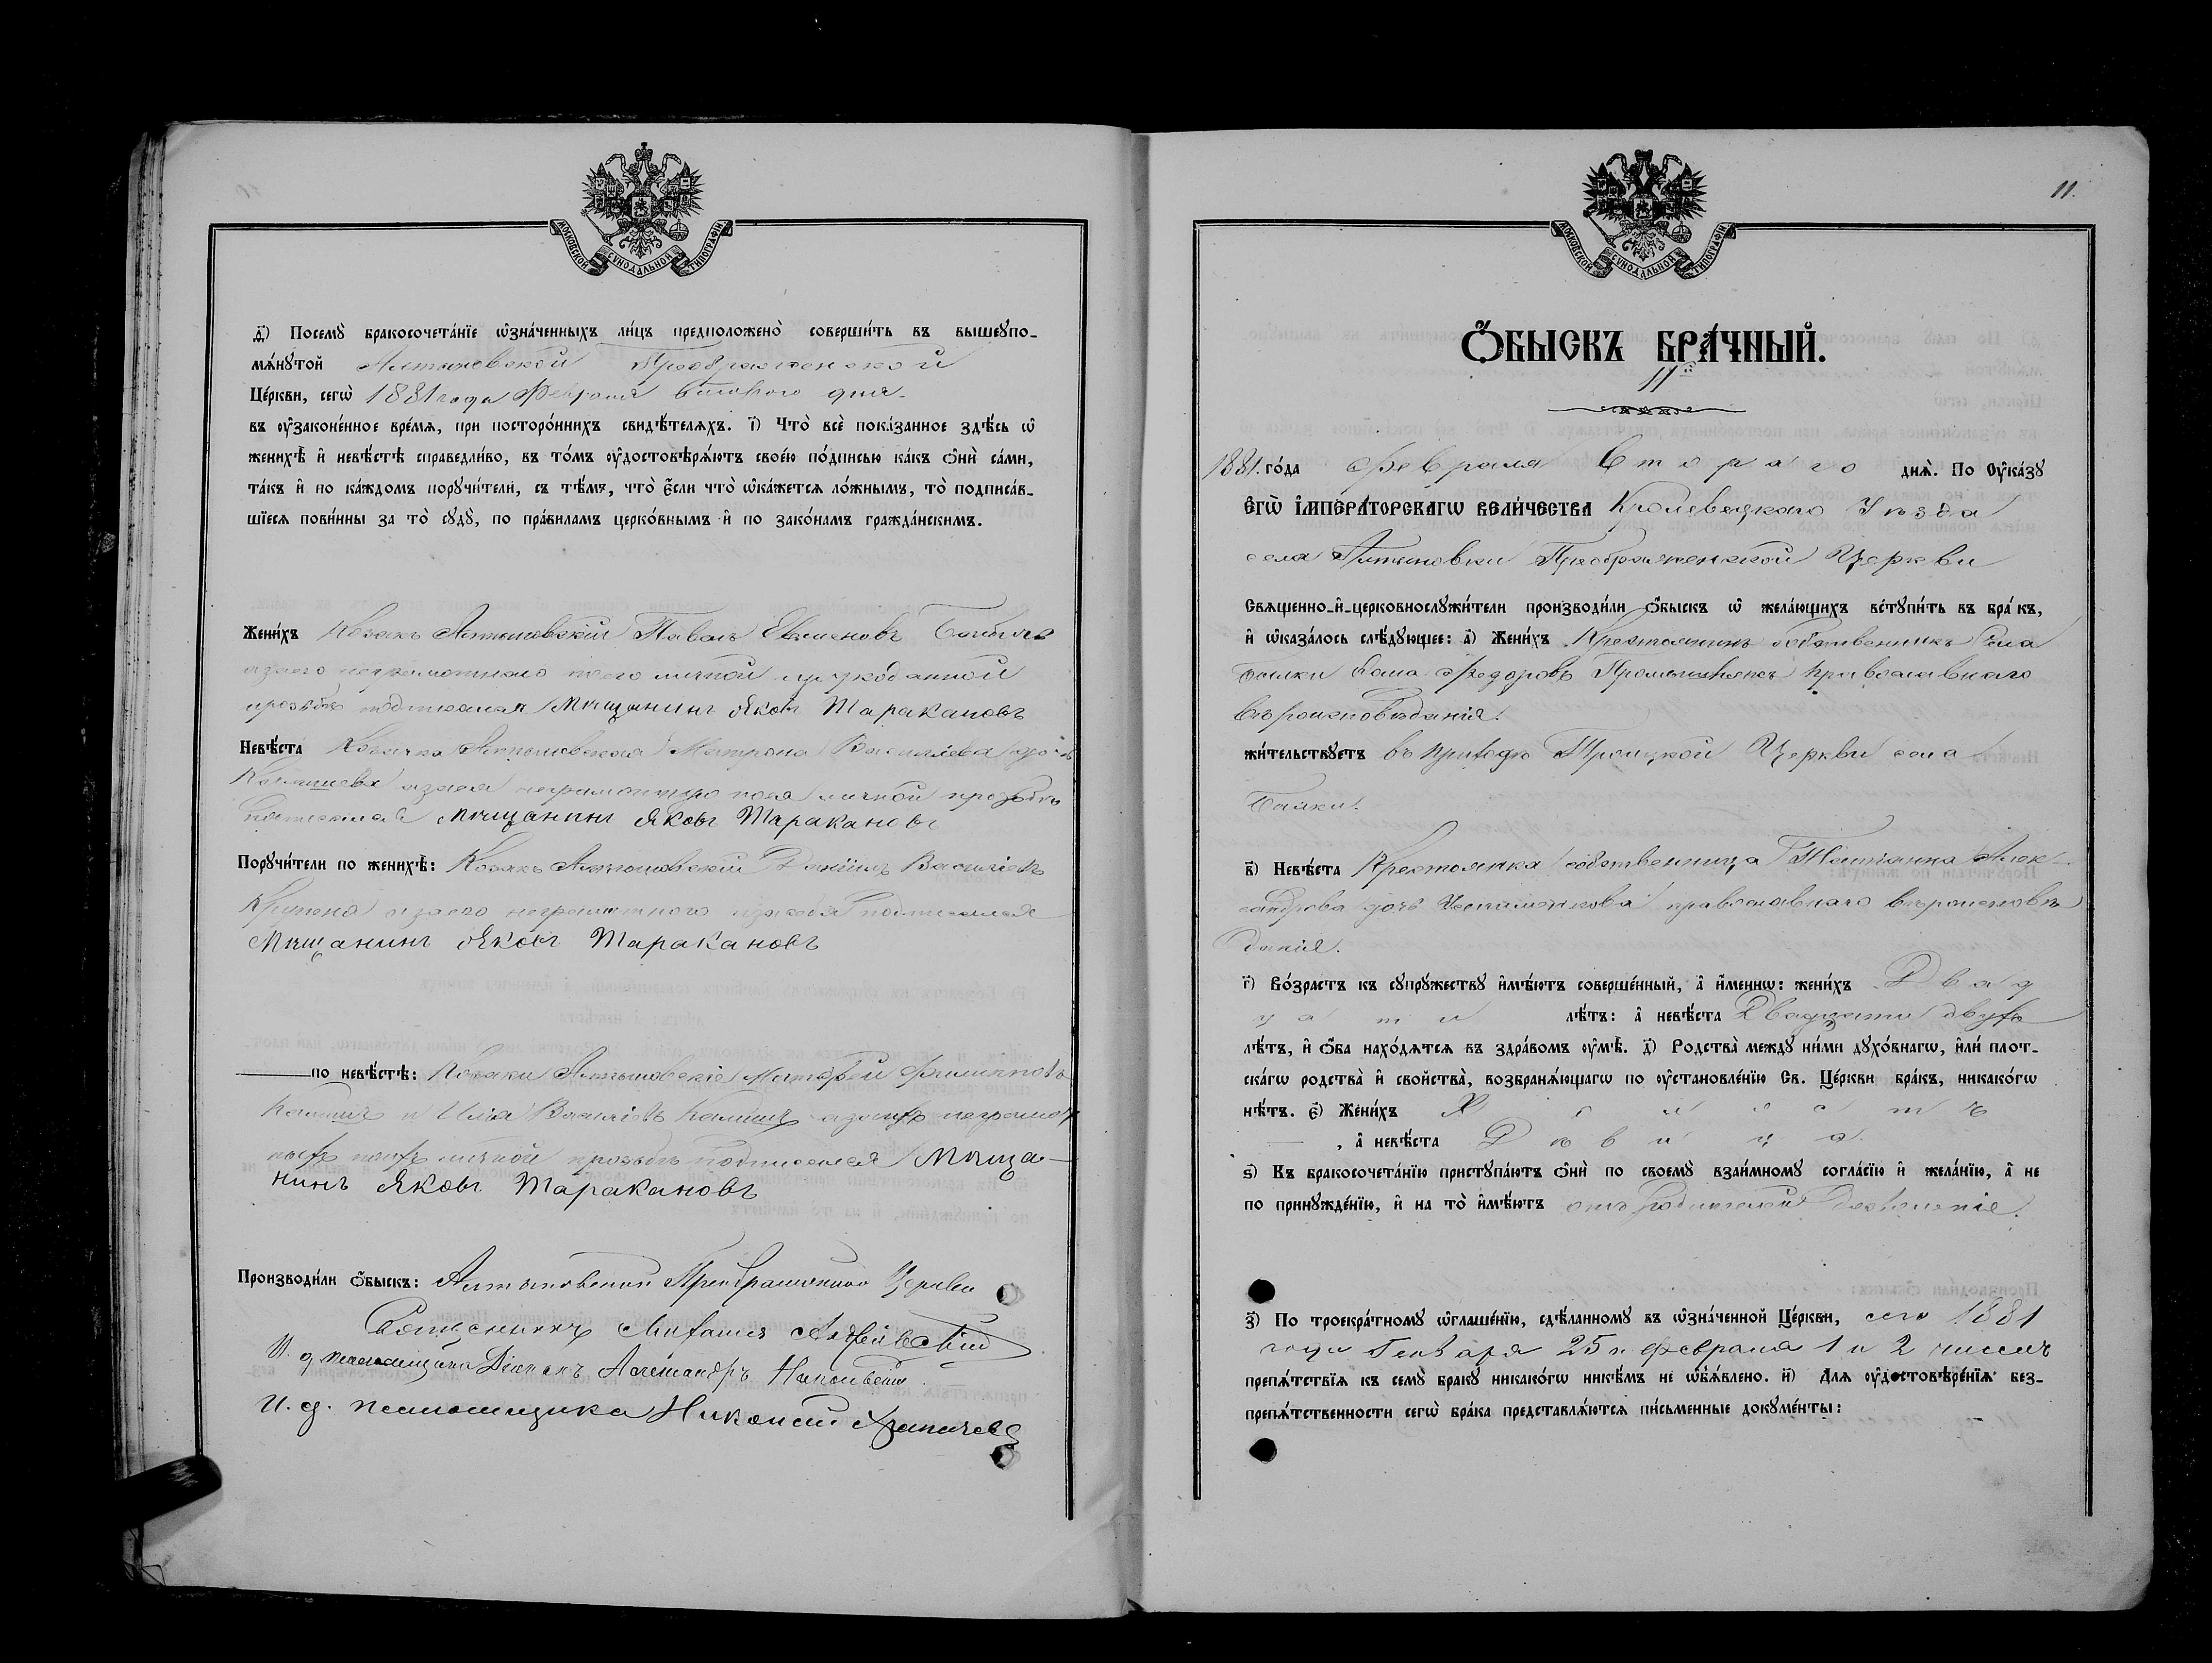 МОСКОВСКОЙ СѴНОДАЛЬНОЙ ТИПОГРАФІИ
д҃) Посемꙋ̀ бракосочета́нїе ѡ҆зна́ченныхъ ли́цъ предположено̀ соверши́ть въ вышеꙋпо-
мѧ́нꙋтой Алтыновской Преображенской
Це́ркви, сегѡ̀ 1881 года Февраля втораго дня.
въ ᲂу҆законе́нное вре́мѧ, при посторо́ннихъ свидѣ́телѧхъ. і҃) Что̀ всѐ пока́занное здѣ́сь ѡ҆
женихѣ̀ и҆ невѣ́стѣ справедли́во, въ то́мъ ᲂу҆достовѣрѧ́ютъ свое́ю по́дписью ка́къ ѻ҆нѝ са́ми,
та́къ и҆ по ка́ждомъ порꙋчи́тели, съ тѣ́мъ, что̀ є҆́сли что̀ ѡ҆ка́жетсѧ ло́жнымъ, то̀ подписа́в-
шїесѧ пови́нны за то̀ сꙋдꙋ̀, по пра́виламъ церко́внымъ и҆ по зако́намъ гражда́нскимъ.
Жени́хъ Козакъ Алтыновскій Павелъ Евменовъ
а за его неграмотнаго по его личной
прозьбѣ подписался Мѣщанинъ Яковъ Таракановъ
Невѣ́ста Козачка Алтыновская Матрона Василіева дочь
а за нея неграмотную по ея личной прозьбѣ
подписался Мѣщанинъ Яковъ Таракановъ
Порꙋчи́тели по женихѣ̀: Козакъ Алтыновскій Даніилъ Василіевъ
а за его неграмотного подписался
Мѣщанинъ Яковъ Таракановъ
по невѣ́стѣ: Козаки Алтыновскіе Матфей Филипповъ
и Илія Василіевъ а за ихъ неграмот
ныхъ по ихъ личной прозьбѣ подписался Мѣща-
нинъ Яковъ Таракановъ
Производи́ли ѻ҆́быскъ: Алтыновской Преображенской Церкви
Священникъ Михаилъ
И. д. псаломщика Діаконъ Александръ
И. д. псаломщика Николай
11.
МОСКОВСКОЙ СѴНОДАЛЬНОЙ ТИПОГРАФІИ
Ѻ҆БЫСКЪ БРА́ЧНЫЙ.
11й
1881. го́да Февраля Втораго днѧ̀. По Оу҆ка́зꙋ
Є҆ГѠ̀ І҆МПЕРА́ТОРСКАГѠ ВЕЛИ́ЧЕСТВА Кролевецкаго Уѣзда
села Алтыновки Преображенской Церкви
Свѧщенно-и҆-церковнослꙋжи́тели производи́ли ѻ҆́быскъ ѡ҆ жела́ющихъ встꙋпи́ть въ бра́къ,
и҆ ѡ҆каза́лось слѣ́дꙋющее: а҃) Жени́хъ Крестьянинъ собственникъ села
Федоровъ православнаго
вѣроисповѣданія.
жи́тельствꙋетъ въ приходѣ Троицкой Церкви села
в҃) Невѣ́ста Крестьянка собственница Татіанна Алек-
сандрова дочь православнаго вѣроисповѣ
данія.
г҃) Во́зрастъ къ сꙋпрꙋ́жествꙋ и҆мѣ́ютъ соверше́нный, а҆ и҆́меннѡ: жени́хъ Двад
цати лѣ́тъ: а҆ невѣ́ста Двадцати двухъ
лѣ́тъ, и҆ ѻ҆́ба нахо́дѧтсѧ въ здра́вомъ ᲂу҆мѣ̀. д҃) Родства̀ междꙋ ни́ми дꙋхо́внагѡ, и҆лѝ плот-
ска́гѡ родства̀ и҆ свойства̀, возбранѧ́ющагѡ по ᲂу҆становле́нїю Св. Це́ркви бра́къ, никако́гѡ
нѣ́тъ. є҃) Жени́хъ Холостъ
, а҆ невѣ́ста Дѣвица
ѕ҃) Къ бракосочета́нїю пристꙋпа́ютъ ѻ҆нѝ по своемꙋ̀ взаи́мномꙋ согла́сїю и҆ жела́нїю, а҆ не
по принꙋжде́нїю, и҆ на то̀ и҆мѣ́ютъ отъ родителей дозволеніе.
з҃) По троекра́тномꙋ ѡ҆глаше́нїю, сдѣ́ланномꙋ въ ѡ҆зна́ченной Це́ркви, сего 1881
года Генваря 25 и Февраля 1 и 2 чиселъ
препѧ́тствїѧ къ семꙋ̀ бракꙋ никако́гѡ никѣ́мъ не ѡ҆б̾ѧ́влено. и҃) Длѧ ᲂу҆достовѣре́нїѧ без-
препѧ́тственности сегѡ̀ бра́ка представлѧ́ютсѧ пи́сьменные докꙋме́нты: